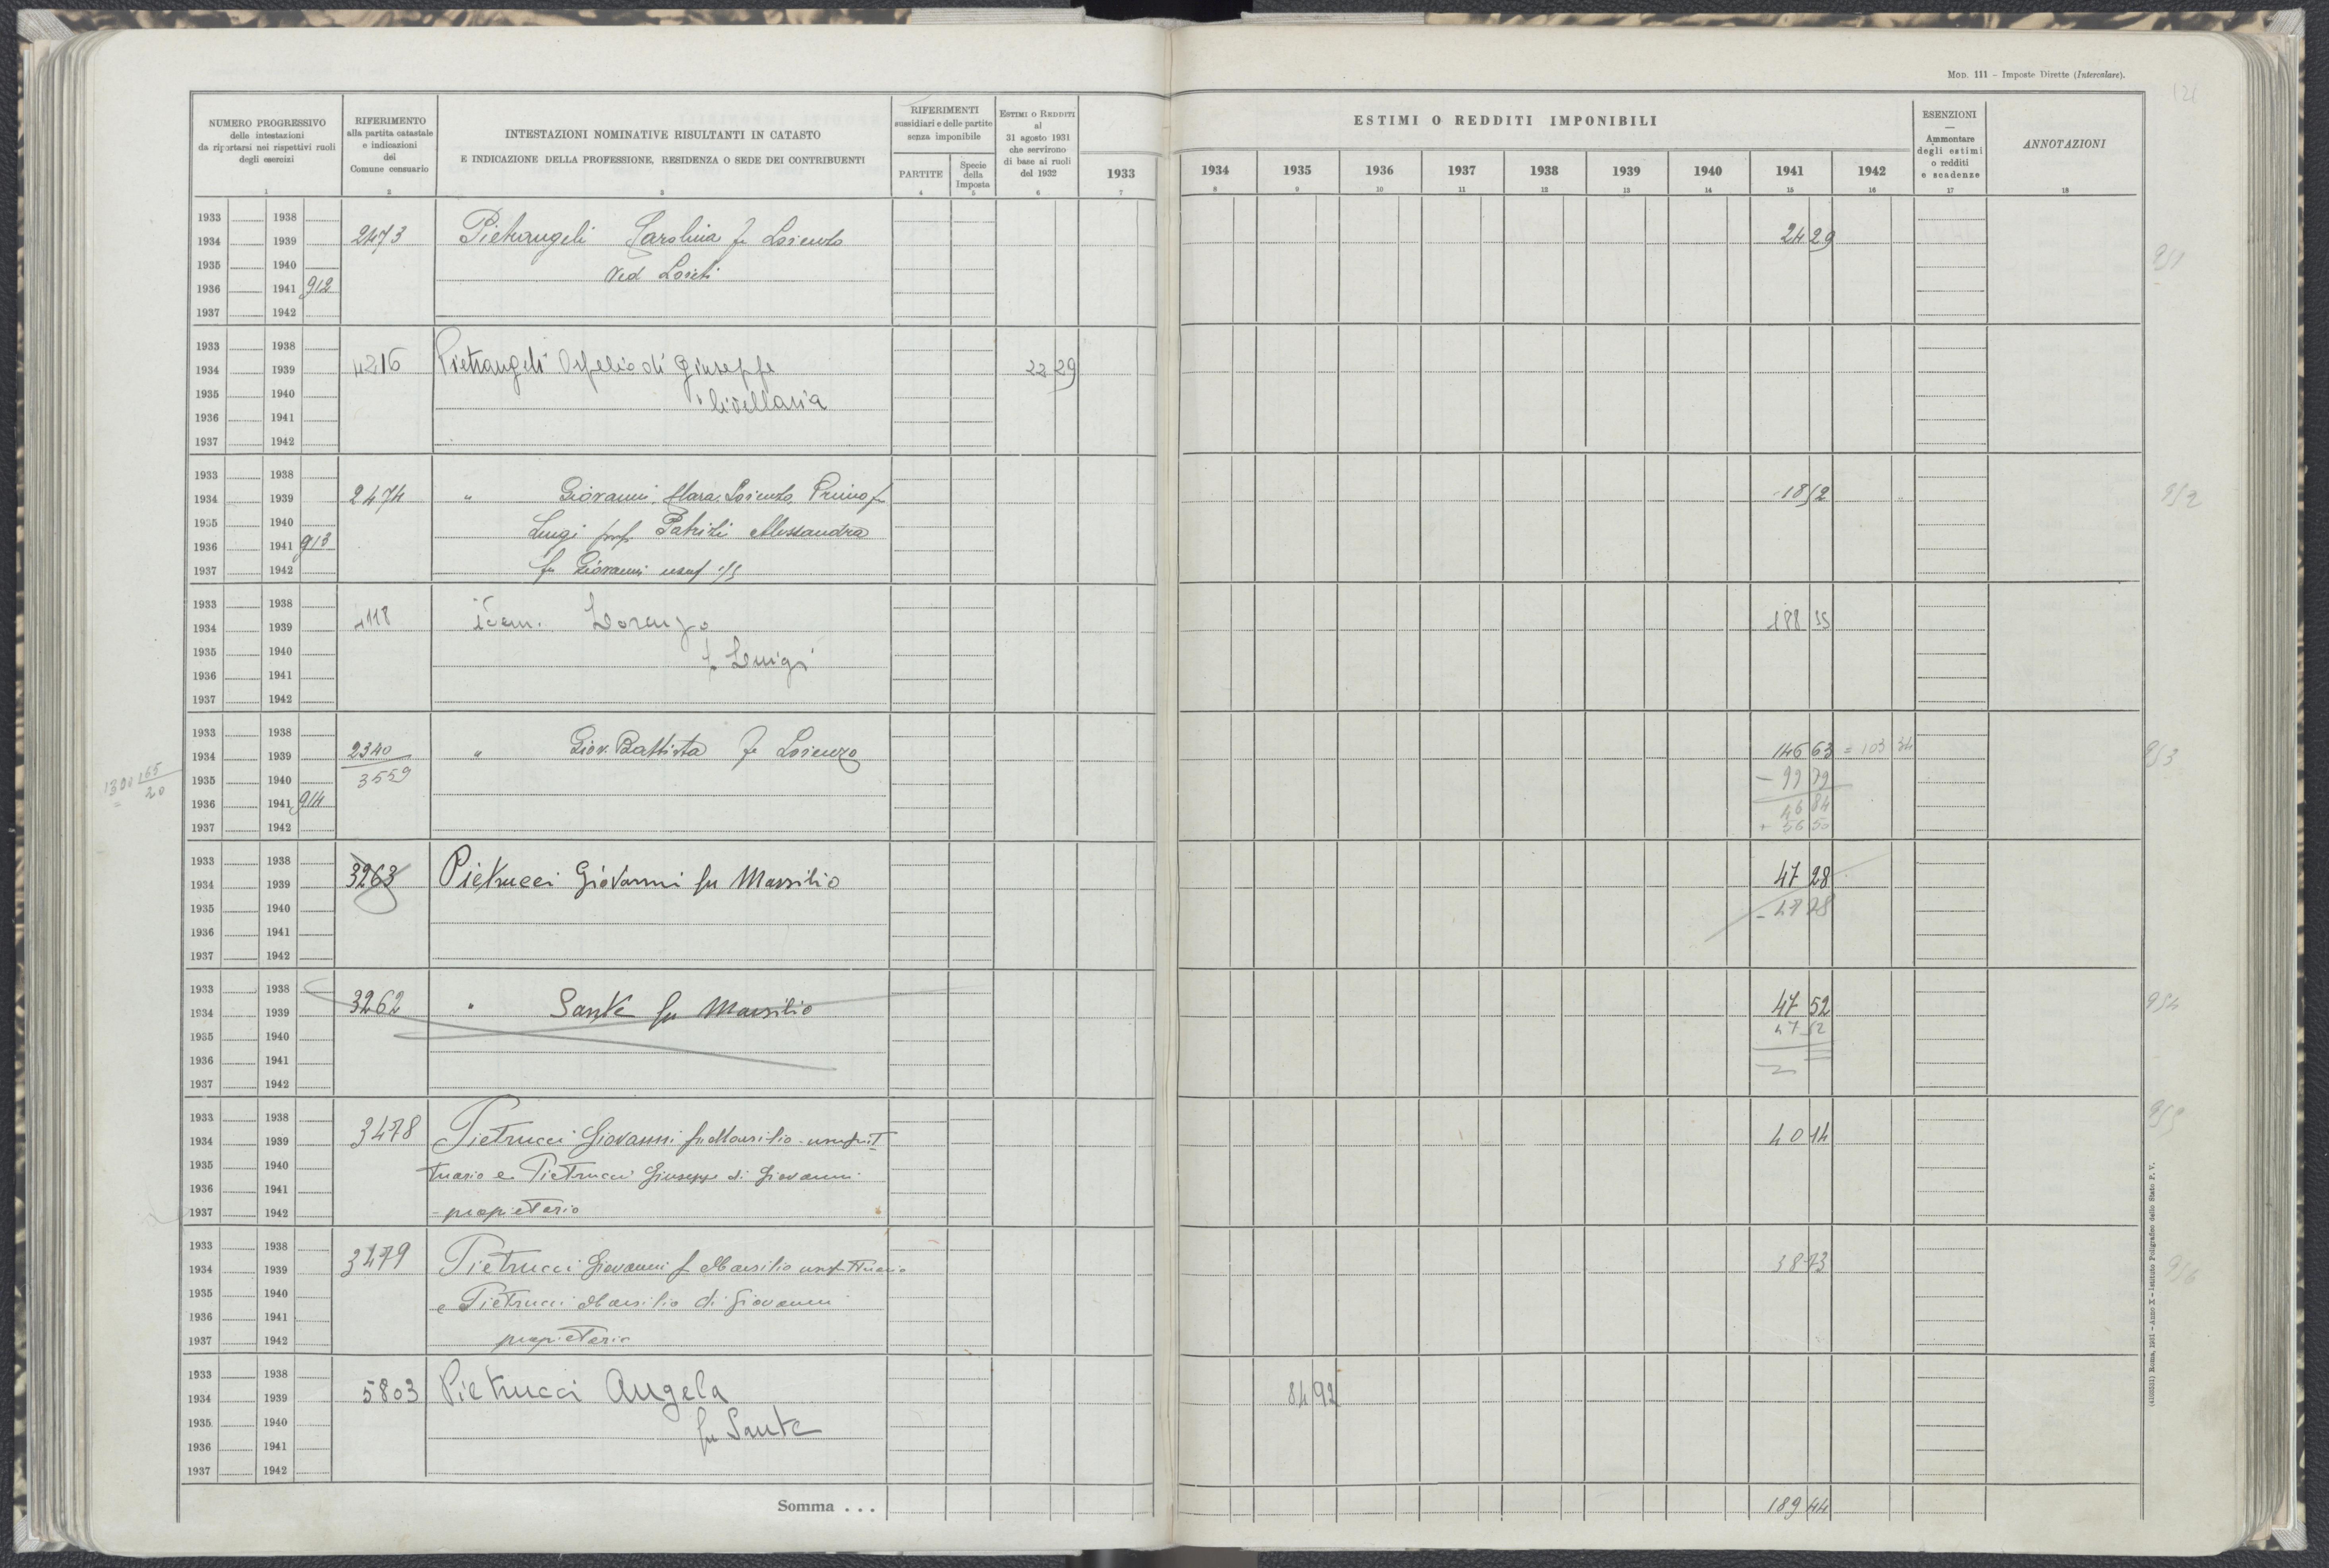 MOD. 111 – Imposte Dirette (Intercalare).
121
NUMERO PROGRESSIVO
delle intestazioni
da riportarsi nei rispettivi ruoli
degli esercizi
RIFERIMENTO
alla partita catastale
e indicazioni
del
Comune censuario
INTESTAZIONI NOMINATIVE RISULTANTI IN CATASTO
E INDICAZIONE DELLA PROFESSIONE, RESIDENZA O SEDE DEI CONTRIBUENTI
RIFERIMENTI
sussidiari e delle partite
senza imponibile
PARTITE
Specie
della
Imposta
ESTIMI O REDDITI
al
31 agosto 1931
che servirono
di base ai ruoli
del 1932
ESTIMI O REDDITI IMPONIBILI
1933 1934 1935 1936 1937 1938 1939 1940 1941 1942
ESENZIONI
—
Ammontare
degli estimi
o redditi
e scadenze
ANNOTAZIONI
1 2 3 4 5 6 7 8 9 10 11 12 13 14 15 16 17 18
1933 1938
1934 1939 2473 Pietrangeli Carolina fu Lorenzo 24 29
1935 1940 ved Loreti 951
1936 1941 912
1937 1942
1933 1938
1934 1939 4216 Pietrangeli Orfelio di Giuseppe 22 29
1935 1940 livellaria
1936 1941
1937 1942
1933 1938
1934 1939 2474 " Giovanni, Mara, Lorenzo, Primo fu 18 52 952
1935 1940 Luigi prop Patrizi Alessandra
1936 1941 913
1937 1942 fu Giovanni usuf 1/5
1933 1938
1934 1939 4118 idem. Lorenzo 188 55
1935 1940 fu Luigi
1936 1941
1937 1942
1933 1938
1934 1939 2340 " Giov. Battista fu Lorenzo 146 63 = 103 34 953
1935 1940 3559 – 99 79
1936 1941 914 46 84
1937 1942 + 56 50
165
20
1933 1938
1934 1939 3263 Pietrucci Giovanni fu Marsilio 47 28
1935 1940 – 47 28
1936 1941
1937 1942
1933 1938
1934 1939 3262 " Sante fu Marsilio 47 52 954
1935 1940 47 52
1936 1941
1937 1942
1933 1938
1934 1939 3478 Pietrucci Giovanni fu Marsilio - usufrut 40 14 955
1935 1940 tuario e Pietrucci Giuseppe di Giovanni
1936 1941
1937 1942 - propietario
1933 1938
1934 1939 3479 Pietrucci Giovanni f Marsilio usufruttuario 38 73 956
1935 1940 e Pietrucci Marsilio di Giovanni
1936 1941
1937 1942 propietario
1933 1938
1934 1939 5803 Pietrucci Angela 84 92
1935 1940 fu Sante
1936 1941
1937 1942
Somma . . . 189 44
(4103331) Roma, 1931 - Anno X - Istituto Poligrafico dello Stato P. V.